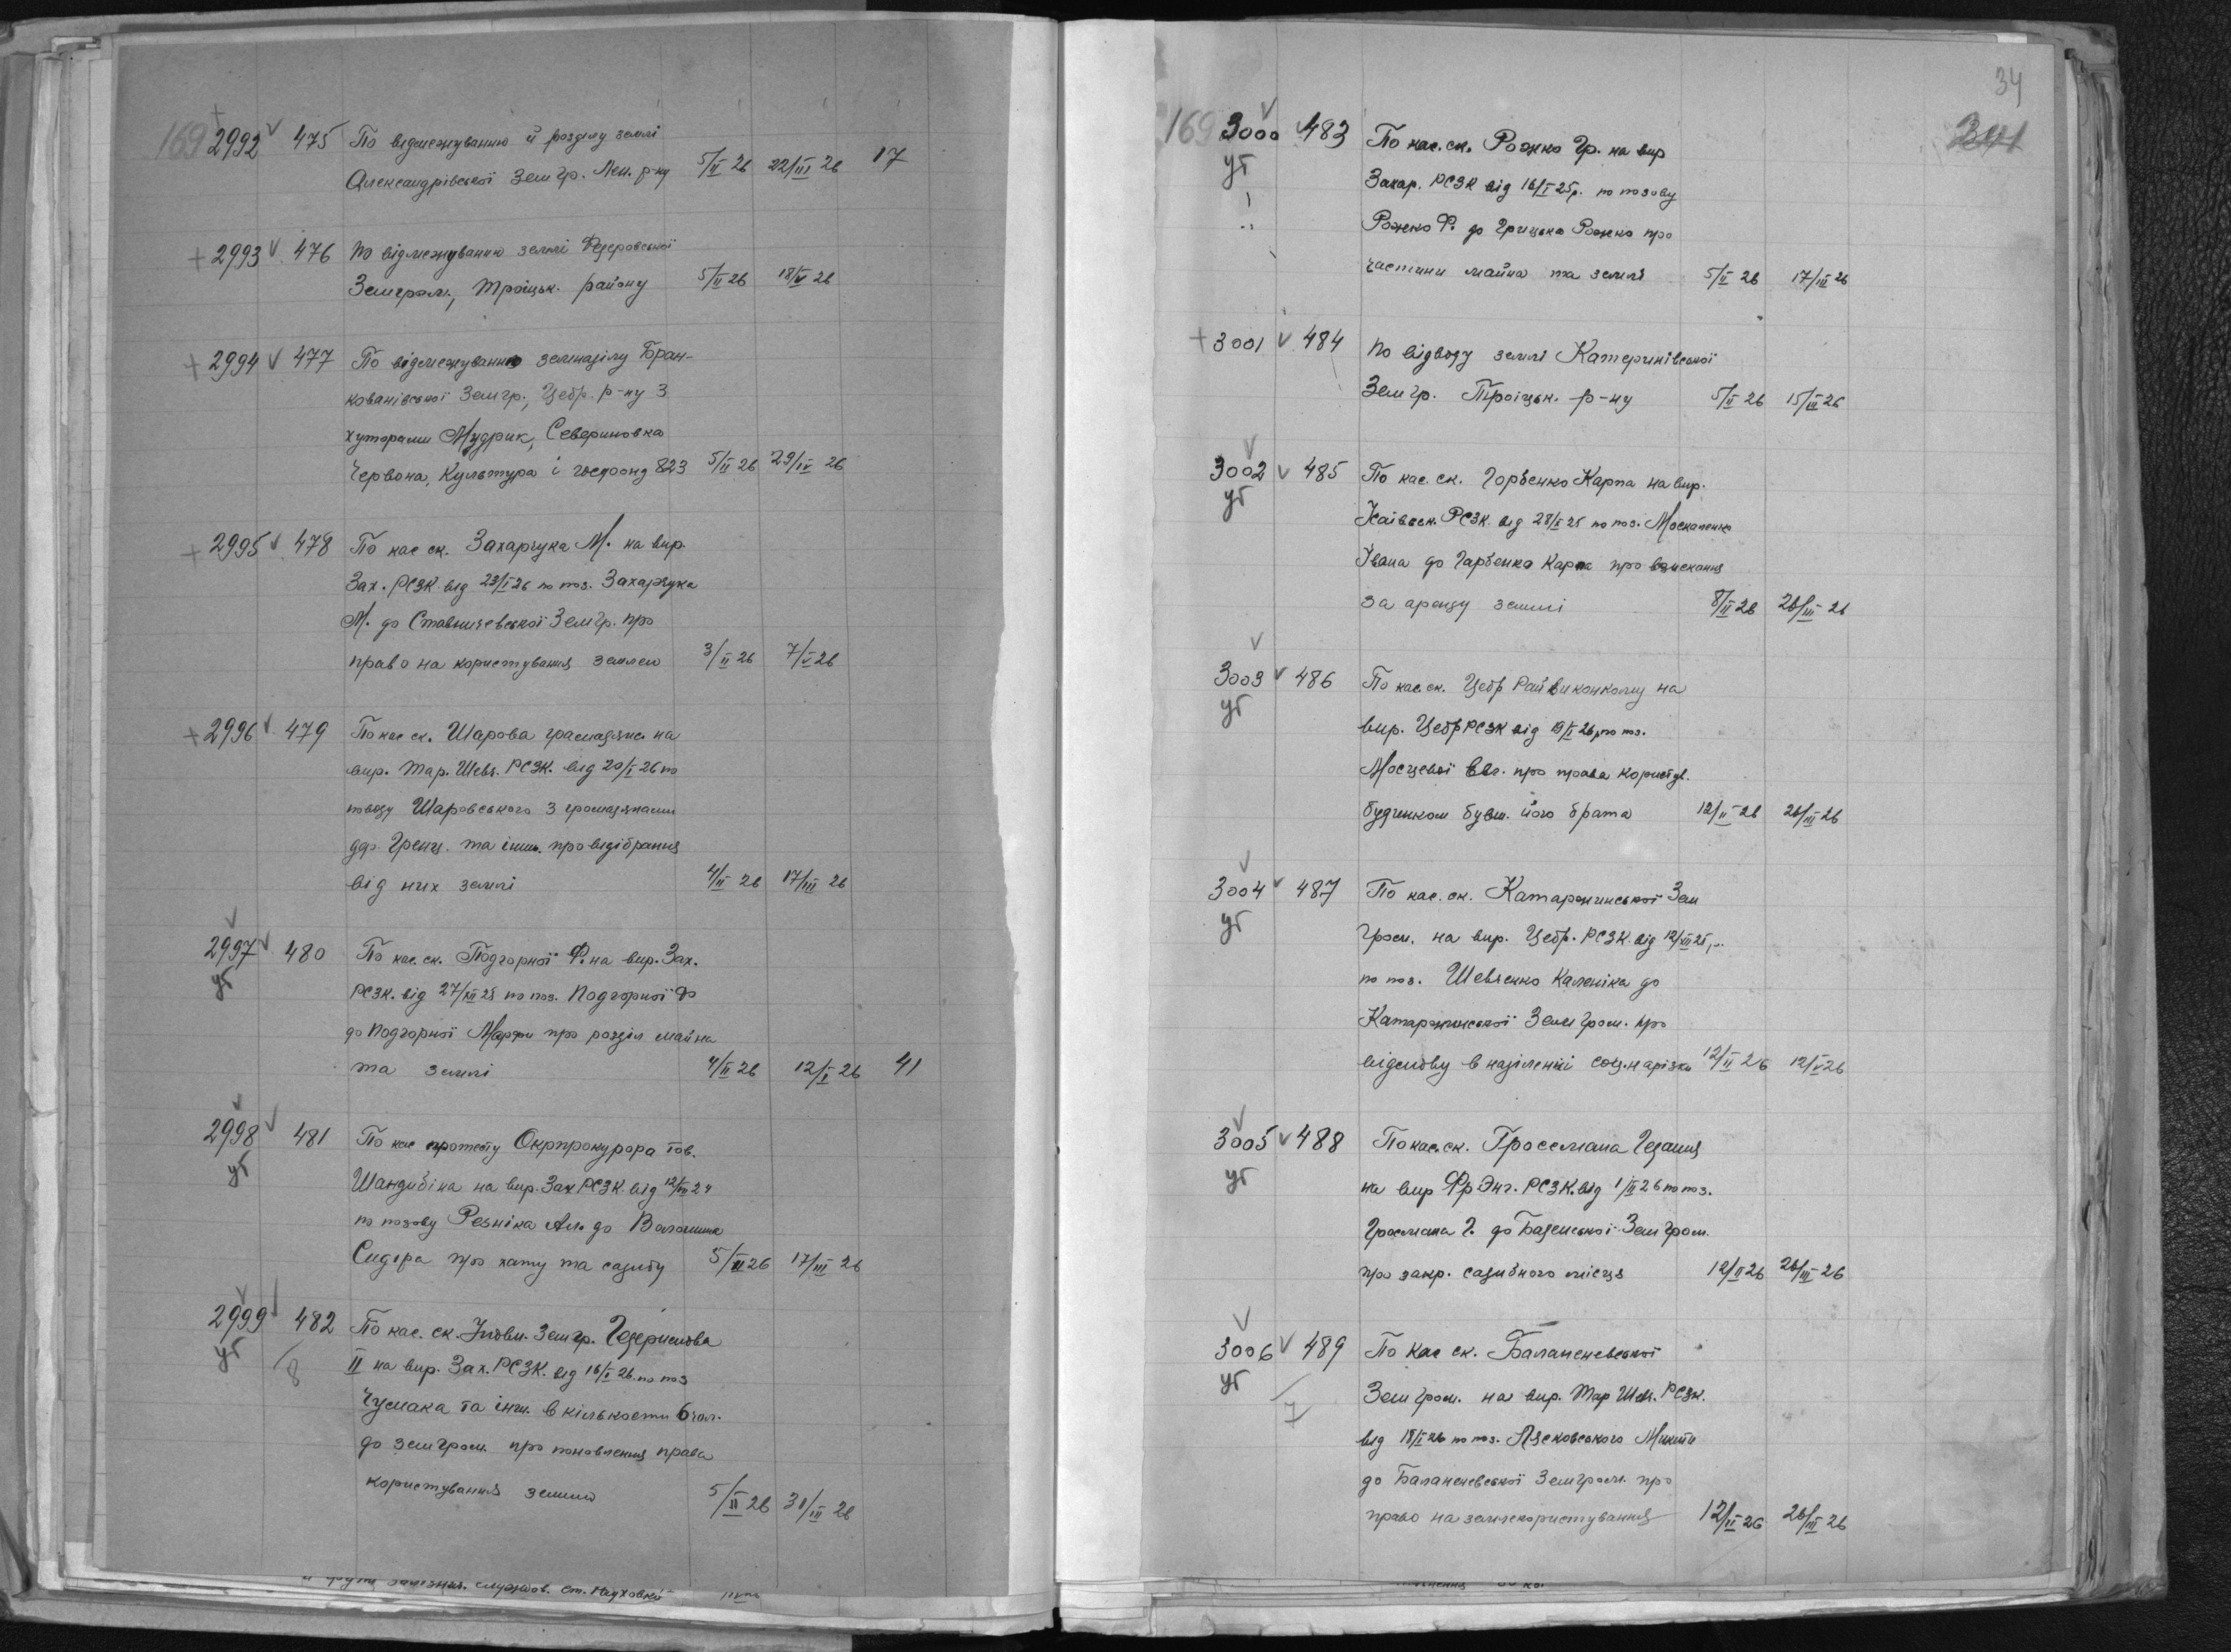 169 2992 475 По відмежуванню й розділу землі
Александрівської Земгр. Лен. р-ну 5/II 26 22/III 26 17
2993 476 По відмежуванню землі Федеровської
Земгром., Троіцьк. району 5/II 26 18/V 26
2994 477 По відмежуваннюземнаділу Бран-
кованівської Земгр., Цебр. р-ну З
хуторами Мудрик, Севериновка
Червона, Культура і госфонд 823 5/II 26 29/IV 26
2995 478 По кас ск. Захарчука М. на вир.
Зах. РСЗК від 23/I 26 по поз. Захарчука
М. до Ставничевської Земгр. про
право на користування землею 3/II 26 7/V 26
2996 479 По кас ск. Шарова громадянс. на
вир. Тар. Шевч. РСЗК. від 20/I 26 по
позову Шаровського З громадянами
до Гренц. та інш. про відібрання
від них землі 4/II 26 17/III 26
2997 480 По кас. ск. Подгорної Ф. на вир. Зах.
уг РСЗК. від 27/XII 25 по поз. Подгорної Ф
до Подгорної Марфи про розділ майна
та землі 4/II 26 12/I 26 41
2998 481 По кас протесту Окрпрокурора тов.
уг Шандибіна на вир. Зах РСЗК. від 12/XII 24
по позову Резніка Ал. до Волошина
Сидора про хату та садибу 5/II 26 17/III 26
2999 482 По кас. ск. Земгр. Гедеримова
уг 8 II на вир. Зах. РСЗК. від 16/I 26. по поз
Чумака та інш. в кількости 6 чол.
до земгром. про поновлення права
користування землею 5/II 26 31/III 26
34
169 3000 483 По кас. ск. Рожко Гр. на вир
уг Захар. РСЗК від 16/I 25р. по позову
Рожко Ф. до Грицька Рожко про
частини майна та землі 5/II 26 17/III 26
3001 484 По відводу землі Катеринівської
Земгр. Троіцьк. р-ну 5/II 26 15/III 26
3002 485 По кас. ск. Горбенко Карпа на вир.
уг РСЗК. від 28/X 25 по поз. Москаленко
Івана до Гарбенко Карпа про взискання
за аренду землі 8/II 26 26/III 26
3003 486 По кас. ск. Цебр Райвиконкому на
уг вир. Цебр РСЗК від 19/I 26, по поз.
Мосцевої Євг. про права користув.
будинком бувш. його брата 12/II 26 26/III 26
3004 487 По кас. ск. Катаржинської Зем
уг Гром. на вир. Цебр. РСЗК. від 12/XII 25р.
по поз. Шевченко Каленіка до
Катаржинської Земгром. про
відмову в наділенні соц. нарізки 12/II 26 12/V 26
3005 488 По кас. ск. Гроссмана Гедалия
уг на вир Фр. Энг. РСЗК. від 1/II 26 по поз.
Гросмана Г. до Баденської Земгром.
про закр. садибного місця 12/II 26 26/III 26
3006 489 По кас ск. Баланеневської
уг 7 Земгром. на вир. Тар Шев. РСЗК.
від 18/I 26 по поз. Лясковського Микити
до Баланеневської Земгром. про
право на землекористування 12/II 26 26/III 26